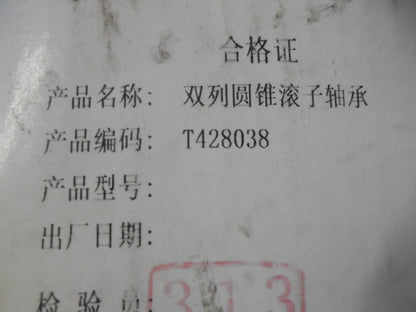 合格证
产品名称: 双列圆锥滚子轴承
产品编码: T428038
产品型号:
出厂日期:
检验员: 313